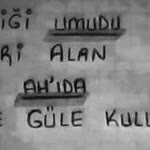 İĞİ UMUDU
Rİ ALAN
AH'IDA
E GÜLE KULL